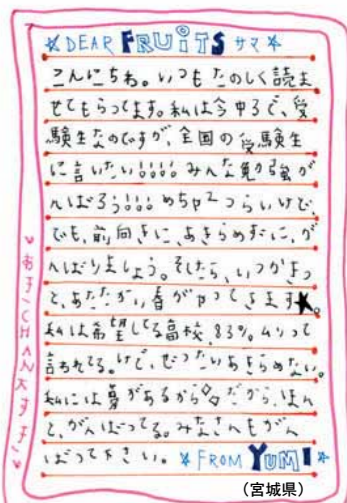 ☆DEAR FRUiTS サマ☆
こんにちわ。いつもたのしく読ま
せてもらってます。私は今中3で、受
験生なのですが、全国の受験生
に言いたい!!!!みんな勉強が
んばろう!!!めちゃ2つらいけど、
でも、前向きに、あきらめずに、が
んばりましょう。そしたら、いつかきっ
と、あたたかい春がやってきます★。
私は希望してる高校、83%。ムリって
言われてる。けど、ぜったいあきらめない。
私には夢があるから◇◇だから、ほん
と、がんばってる。みなさんもがん
ばって下さい。☆FROM YUMI☆
(宮城県)
CHAN大すき